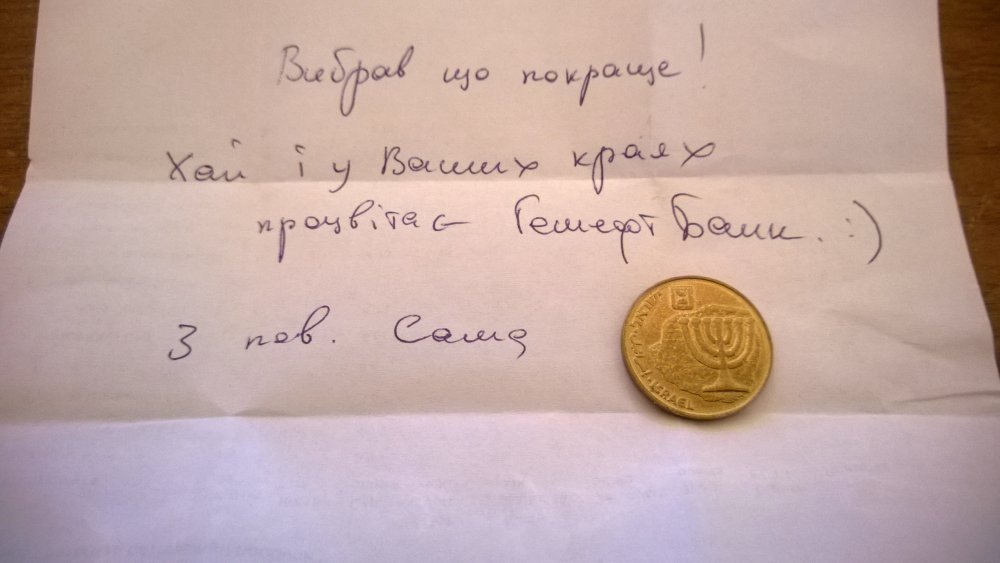 Вибрав що покраще!
Хай і у Ваших краях
процвітає Гешефт Банк. :)
З пов. Саша
ISRAEL